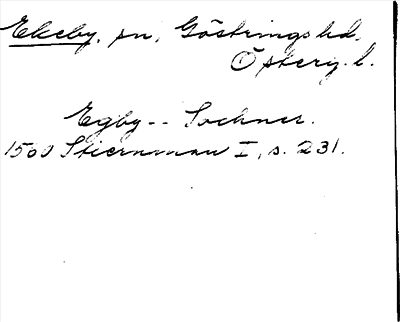 Ekeby, sn, Göstrings hd,
Österg. l.
Egby -- Sochner.
1560 Stiernman I, s. 231.